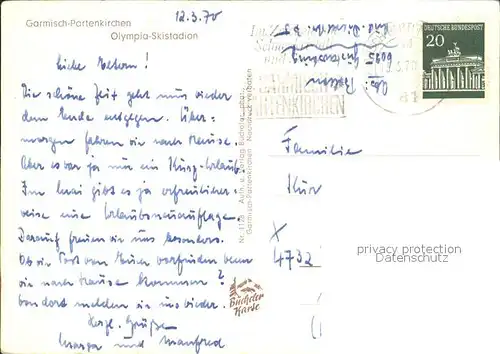 Garmisch-Partenkirchen
Olympia-Skistadion
12.3.70
Liebe Eltern!
Die schöne Zeit geht nun wieder
dem Ende entgegen. Über-
morgen fahren wir nach Hause.
Aber es war ja nur ein Kurz-Urlaub.
Im Mai gibt es ja erfreulicher-
weise eine Urlaubsneuauflage.
Darauf freuen wir uns besonders.
Ob wir Post von Euch vorfinden wenn
wir nach Hause kommen?
Von dort melden wir uns wieder.
Herzl. Grüße
und Manfred
Bücheler
Karte
Nr. 1178 Aufn. u. Verlag: Bücheler, phot.,
Garmisch-Partenkirchen Nachdruck verboten
PARTENKIRCHEN
DEUTSCHE BUNDESPOST
20
Familie
Kur
X
4732
privacy protection
Datenschutz